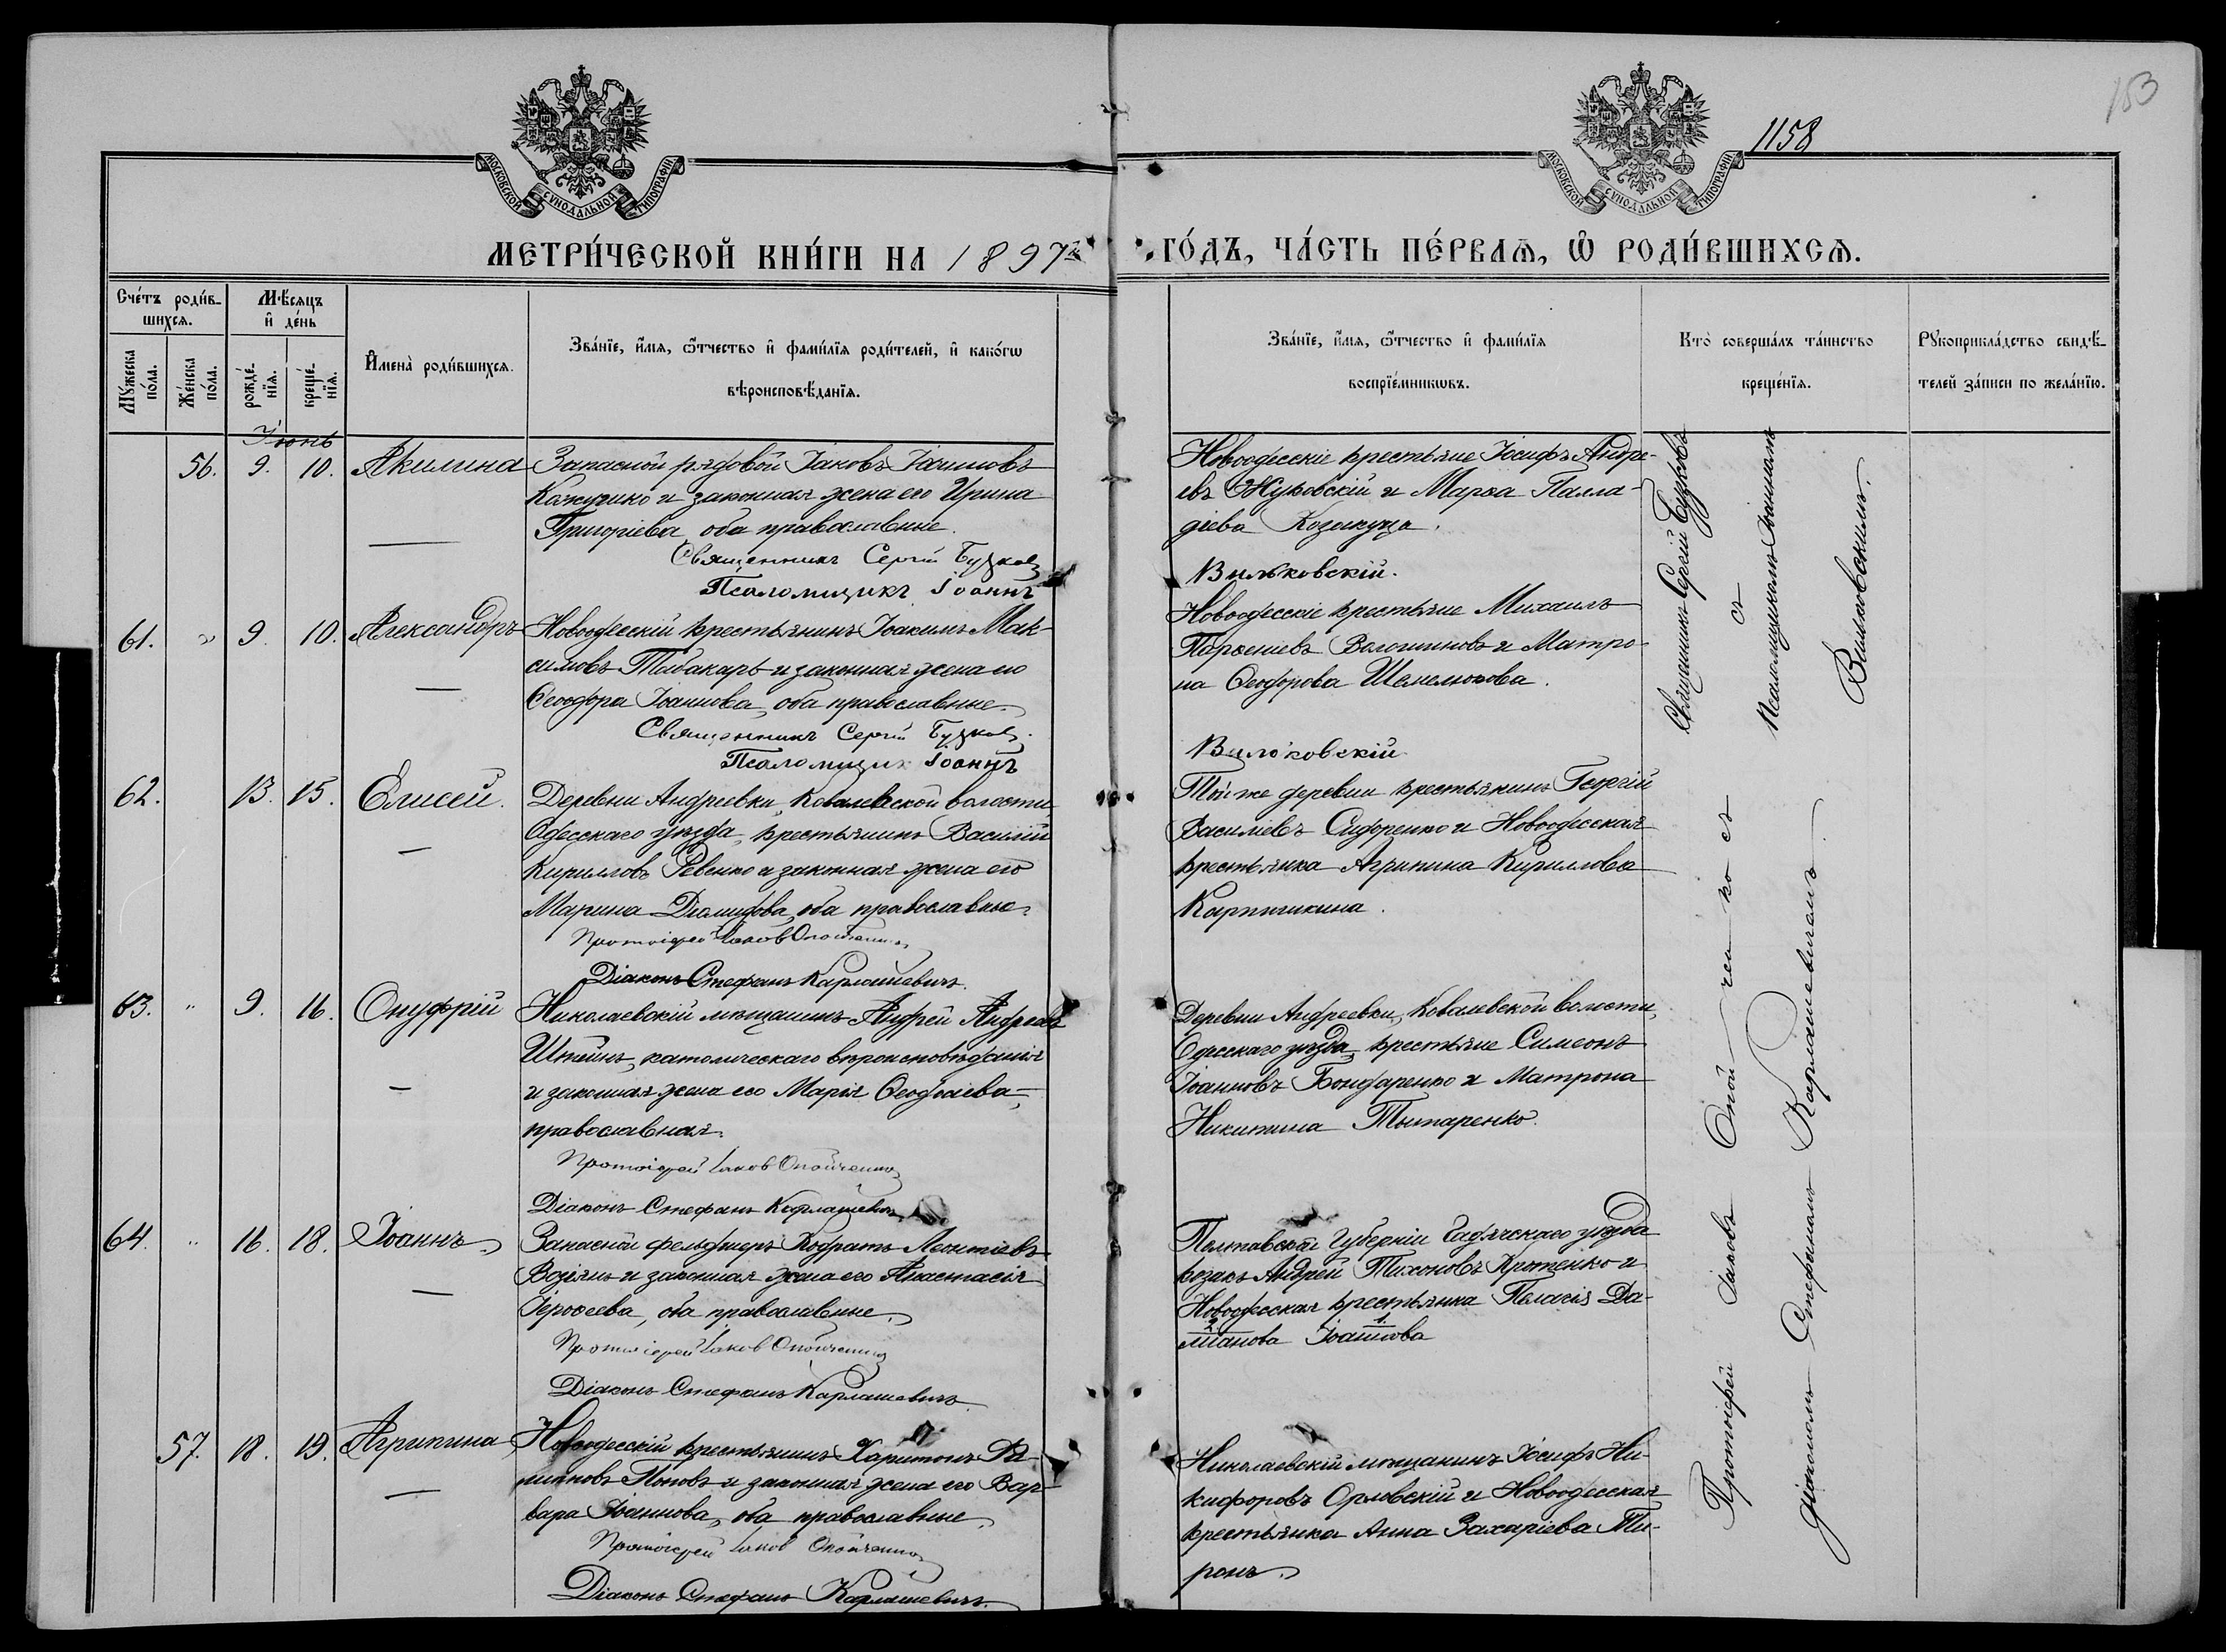 153
1158
МОСКОВСКОЙ СѴНОДАЛЬНОЙ ТИПОГРАФІИ
МОСКОВСКОЙ СѴНОДАЛЬНОЙ ТИПОГРАФІИ
МЕТРИ́ЧЕСКОЙ КНИ́ГИ НА 1897й ГО́ДЪ, ЧА́СТЬ ПЕ́РВАѦ, Ѡ҆ РОДИ́ВШИХСѦ.
Сче́тъ роди́в-
шихсѧ.
Мꙋ́жеска по́ла.
Же́нска по́ла.
Мѣ́сѧцъ
и҆ де́нь
рожде́-
нїѧ.
креще́-
нїѧ.
И҆мена̀ роди́вшихсѧ.
Зва́нїе, и҆́мѧ, ѻ҆́тчество и҆ фами́лїѧ роди́телей, и҆ како́гѡ
вѣроисповѣ́данїѧ.
Зва́нїе, и҆́мѧ, ѻ҆́тчество и҆ фами́лїѧ
воспрїе́мникѡвъ.
Кто̀ соверша́лъ та́инство
креще́нїѧ.
Рꙋкоприкла́дство свидѣ́-
телей за́писи по жела́нїю.
Іюнь
56. 9. 10. Акилина Запасной рядовой Іаковъ
и законная жена его Ирина
Григоріева, оба православные.
Священникъ Сергій Буцковъ
Псаломщикъ Іоаннъ
Новоодесскіе крестьяне Іосифъ Андре-
евъ Жуковскій и Марѳа Палла-
діева
Вильковскій.
61. " 9. 10. Александръ Новоодесскій крестьянинъ Іоакимъ Мак-
симовъ Табакарь и законная жена его
Ѳеодора Іоаннова, оба православные.
Священникъ Сергій Буцковъ
Псаломщикъ Іоаннъ
Новоодесскіе крестьяне Михаилъ
Парѳеніевъ Волошиновъ и Матро-
на Ѳеодорова Шемелюкова.
Вильковскій
62. 13. 15. Елисей. Деревни Андреевки, Ковалевской волости
Одесскаго уѣзда, крестьянинъ Василій
Кирилловъ Ревенко и законная жена его
Марина Діомидова, оба православные.
Протоіерей Іаковъ Опойченко
Діаконъ Стефанъ Карлашевичъ.
Той же деревни крестьянинъ Георгій
Василіевъ Сидоренко и Новоодесская
крестьянка Агрипина Кириллова
Кирпичкина.
63. " 9. 16. Онуфрій Николаевскій мѣщанинъ Андрей Андреевъ
Штейнъ, католическаго вѣроисповѣданія
и законная жена его Марія
православная.
Протоіерей Іаковъ Опойченко
Діаконъ Стефанъ Карлашевичъ
Деревни Андреевки, Ковалевской волости,
Одесскаго уѣзда, крестьяне Симеонъ
Іоанновъ Бондаренко и Матрона
Никитина Тытаренко.
64. " 16. 18. Іоаннъ. Запасной фельдшеръ Кодратъ Леонтіевъ
Возіянъ и законная жена его Анастасія
Іероѳеева, оба православные.
Протоіерей Іаковъ Опойченко
Діаконъ Стефанъ Карлашевичъ.
Полтавской Губерніи Гадячскаго уѣзда
козакъ Андрей Тихоновъ Кротенко и
Новоодесская крестьянка Пелагія Да-
2 1.
міанова Іоаннова
57. 18. 19. Агрипина Новоодесскій крестьянинъ Харитонъ
Поповъ и законная жена его Вар-
вара Іоаннова, оба православные.
Протоіерей Іаковъ Опойченко
Діаконъ Стефанъ Карлашевичъ.
Николаевскій мѣщанинъ Іосифъ Ни-
кифоровъ Орловскій и Новоодесская
крестьянка Анна Захаріева Ти-
ронъ.
Священникъ Сергій Буцковъ
съ
Псаломщикомъ Іоанномъ
Вильковскимъ.
Протоіерей Іаковъ Опойченко съ
Діакономъ Стефаномъ Карлашевичемъ.